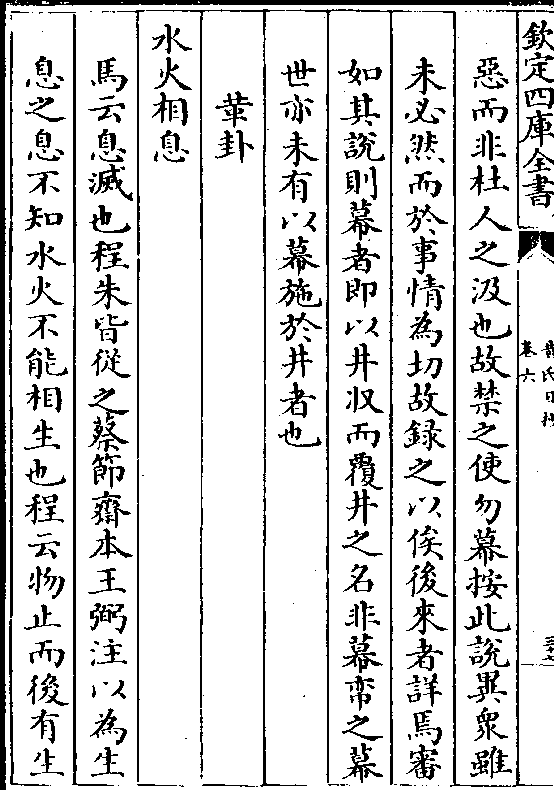 欽定四庫全書
卷六
惡而非杜人之汲也故禁之使勿幕按此說異衆雖
未必然而於事情為切故録之以俟後來者詳焉審
如其說則幕者即以井収而覆井之名非幕帟之幕
世亦未有以幕施於井者也
革卦
水火相息
馬云息滅也程朱皆從之蔡節齋本王弼注以為生
息之息不知水火不能相生也程云物止而後有生